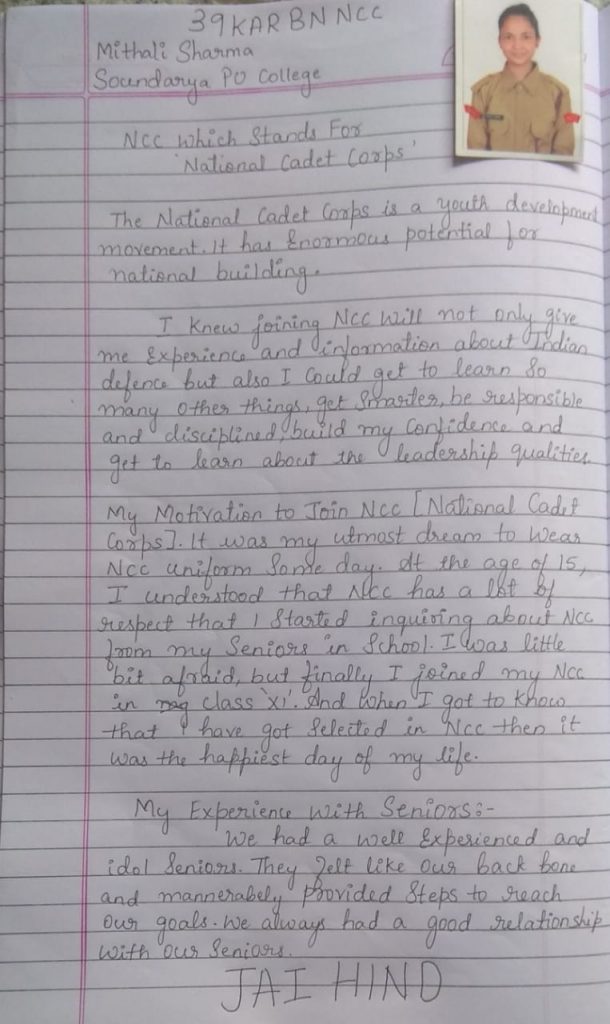 39KAR BN NCC
Mithali Sharma
Soundarya PU College
NCC which Stands For
'National Cadet Corps'
The National Cadet Corps is a youth development
movement. It has Enormous potential for
national building.
I Knew joining NCC will not only give
me Experience and information about Indian
defence but also I Could get to learn So
many other things, get Smarter, be responsible
and disciplined, build my Confidence and
get to learn about the leadership qualities.
My Motivation to Join NCC [National Cadet
Corps]. It was my utmost dream to wear
NCC uniform Some day. At the age of 15,
I understood that NCC has a lot of
respect that I Started inquiring about NCC
from my Seniors in School. I was little
bit afraid, but finally I joined my NCC
in class 'XI'. And when I got to Know
that I have got Selected in NCC then it
was the happiest day of my life.
My Experience with Seniors:-
We had a well Experienced and
idol Seniors. They Felt like our back bone
and mannerabely Provided Steps to reach
our goals. We always had a good relationship
with our Seniors.
JAI HIND